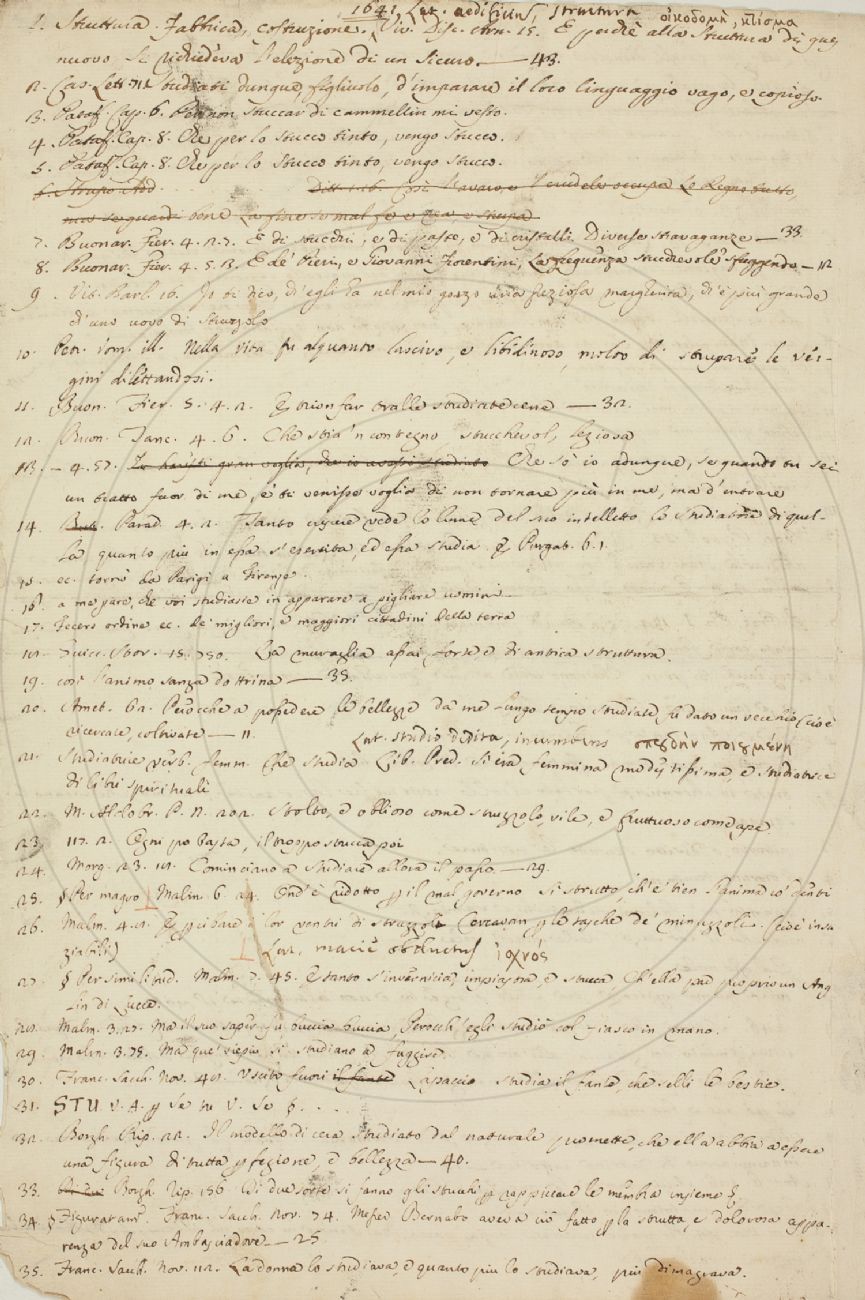 1641. Lat. aedificius, structura οἰκοδομή, κτίσμα
1. Struttura. Fabbrica, costruzione. Viv. Disc. Arn. 15. E perchè alla struttura di que,
nuovo si richiedeva l'elezione di un sicuro. — 43.
2. Cas. Lett. 71. studiati dunque figliuolo, d'imparare il loro linguaggio vago, e copioso.
3. Pataf. Cap. 6. Per non stuccar di cammellin mi vesto.
4. Pataf. Cap. 8. Che per lo stucco tinto, vengo stucco.
5. Pataf. Cap. 8. Che per lo stucco tinto, vengo stucco.
6. Ditt. 1. 16. Così l'avaro, e crudele occupa le Regno tutto
ma se guardi bene la fine
7. Buonar. Fier. 4. 2. 7. E di stucchi, e di paste, e di cristalli Diverse stravaganze — 33.
8. Buonar. Fier. 4. 5. 3. E de' Pieri, e Giovanni Fiorentini, La frequenza stucchevole sfuggendo — 12
9. Vit. Barl. 16. Io ti dico, ch'egli ha nel mio gozzo una preziosa margherita, ch'è più grande
d'uno uovo di struzzolo
10. Petr. Uom. ill. Nella vita fu alquanto lascivo, e libidinoso, molto di stuprare le ver-
gini dilettandosi.
11. Buon. Fier. 5. 4. 2. E trionfar tralle studiate cene — 32.
12. Buon. Tanc. 4. 6. Che stia 'n contegno stucchevol, leziosa
13. — 4. 57. Che so io adunque, se quando tu sei
un tratto fuor di me, e' ti venisse voglia di non tornare più in me, ma d'entrare
14. But. Parad. 4. 2. Tanto cuopre vede lo lume del suo intelletto lo studiatore di quel-
la quanto più in essa s'esercita, ed essa studia. E Purgat. 6. 1.
15. ec. tornò da Parigi a Firenze.
16. a me pare, che voi studiaste in apparare a pigliare uomini
17. Fecero ordine ec. de' migliori, e maggiori cittadini della terra
18. Guicc. Stor. 15. 750. La muraglia assai forte e di antica struttura.
19. così l'animo sanza dottrina — 35.
20. Amet. 62. Perocchè a possedere le bellezze da me lungo tempo studiate, fu dato un vecchio (cioè
ricercate, coltivate — 11.
Lat. studio dedita, incumbens σπουδὴν ποιουμένη
21. Studiatrice verb. femm. Che studia. Lib. Pred. Si era femmina modestissima, e studiatrice
di libri spirituali
22. M. Aldobr. P. N. 202. Stolto, e oblioso come struzzolo, vile, e fruttuoso come ape
23. 117. 2. Ogni po' basta, il troppo stucca poi
24. Morg. 23. 18. Cominciano a studiare allora il passo. — 29.
25. § Per magro Malm. 6. 24. Ond'è ridotto p il mal governo Si strutto, ch'e' tien l'anima co' denti
26. Malm. 4. 8. E p cibare i lor ventri di struzzoli Cercavan p le tasche de' minuzzoli. (cioè insa
ziabili) Lat. macie obductus ἰσχνός
27. § Per similitud. Malm. 7. 45. E tanto s'invernicia, impiastra, e stucca Ch'ella par proprio un Ang
iolin di Lucca.
28. Malm. 3. 27. Ma il suo saper fu buccia buccia, Perocch'egli studiò col fiasco in mano.
29. Malm. 3. 75. Ma que' vie più si studiano a fuggire.
30. Franc. Sacch. nov. 48. Uscito fuori il fante Lapaccio studia il fante, che selli le bestie.
31. STU v. A. p Se tu v. Se §. . . .
32. Borgh. Rip. 22. Il modello di cera studiato dal naturale promette, che ella abbia a essere
una figura di tutta pfezione, e bellezza — 40.
33. Borgh. Rip. 156. Di due sorte si fanno gli stucchi p rappiccare le membra insieme
34. § Figuratam. Franc. Sacch. nov. 74. Messer Bernabo aveva ciò fatto p la strutta, e dolorosa appa-
renza del suo Ambasciadore — 25
35. Franc. Sacch. nov. 112. La donna lo studiava, e quanto più lo studiava, più dimagrava.